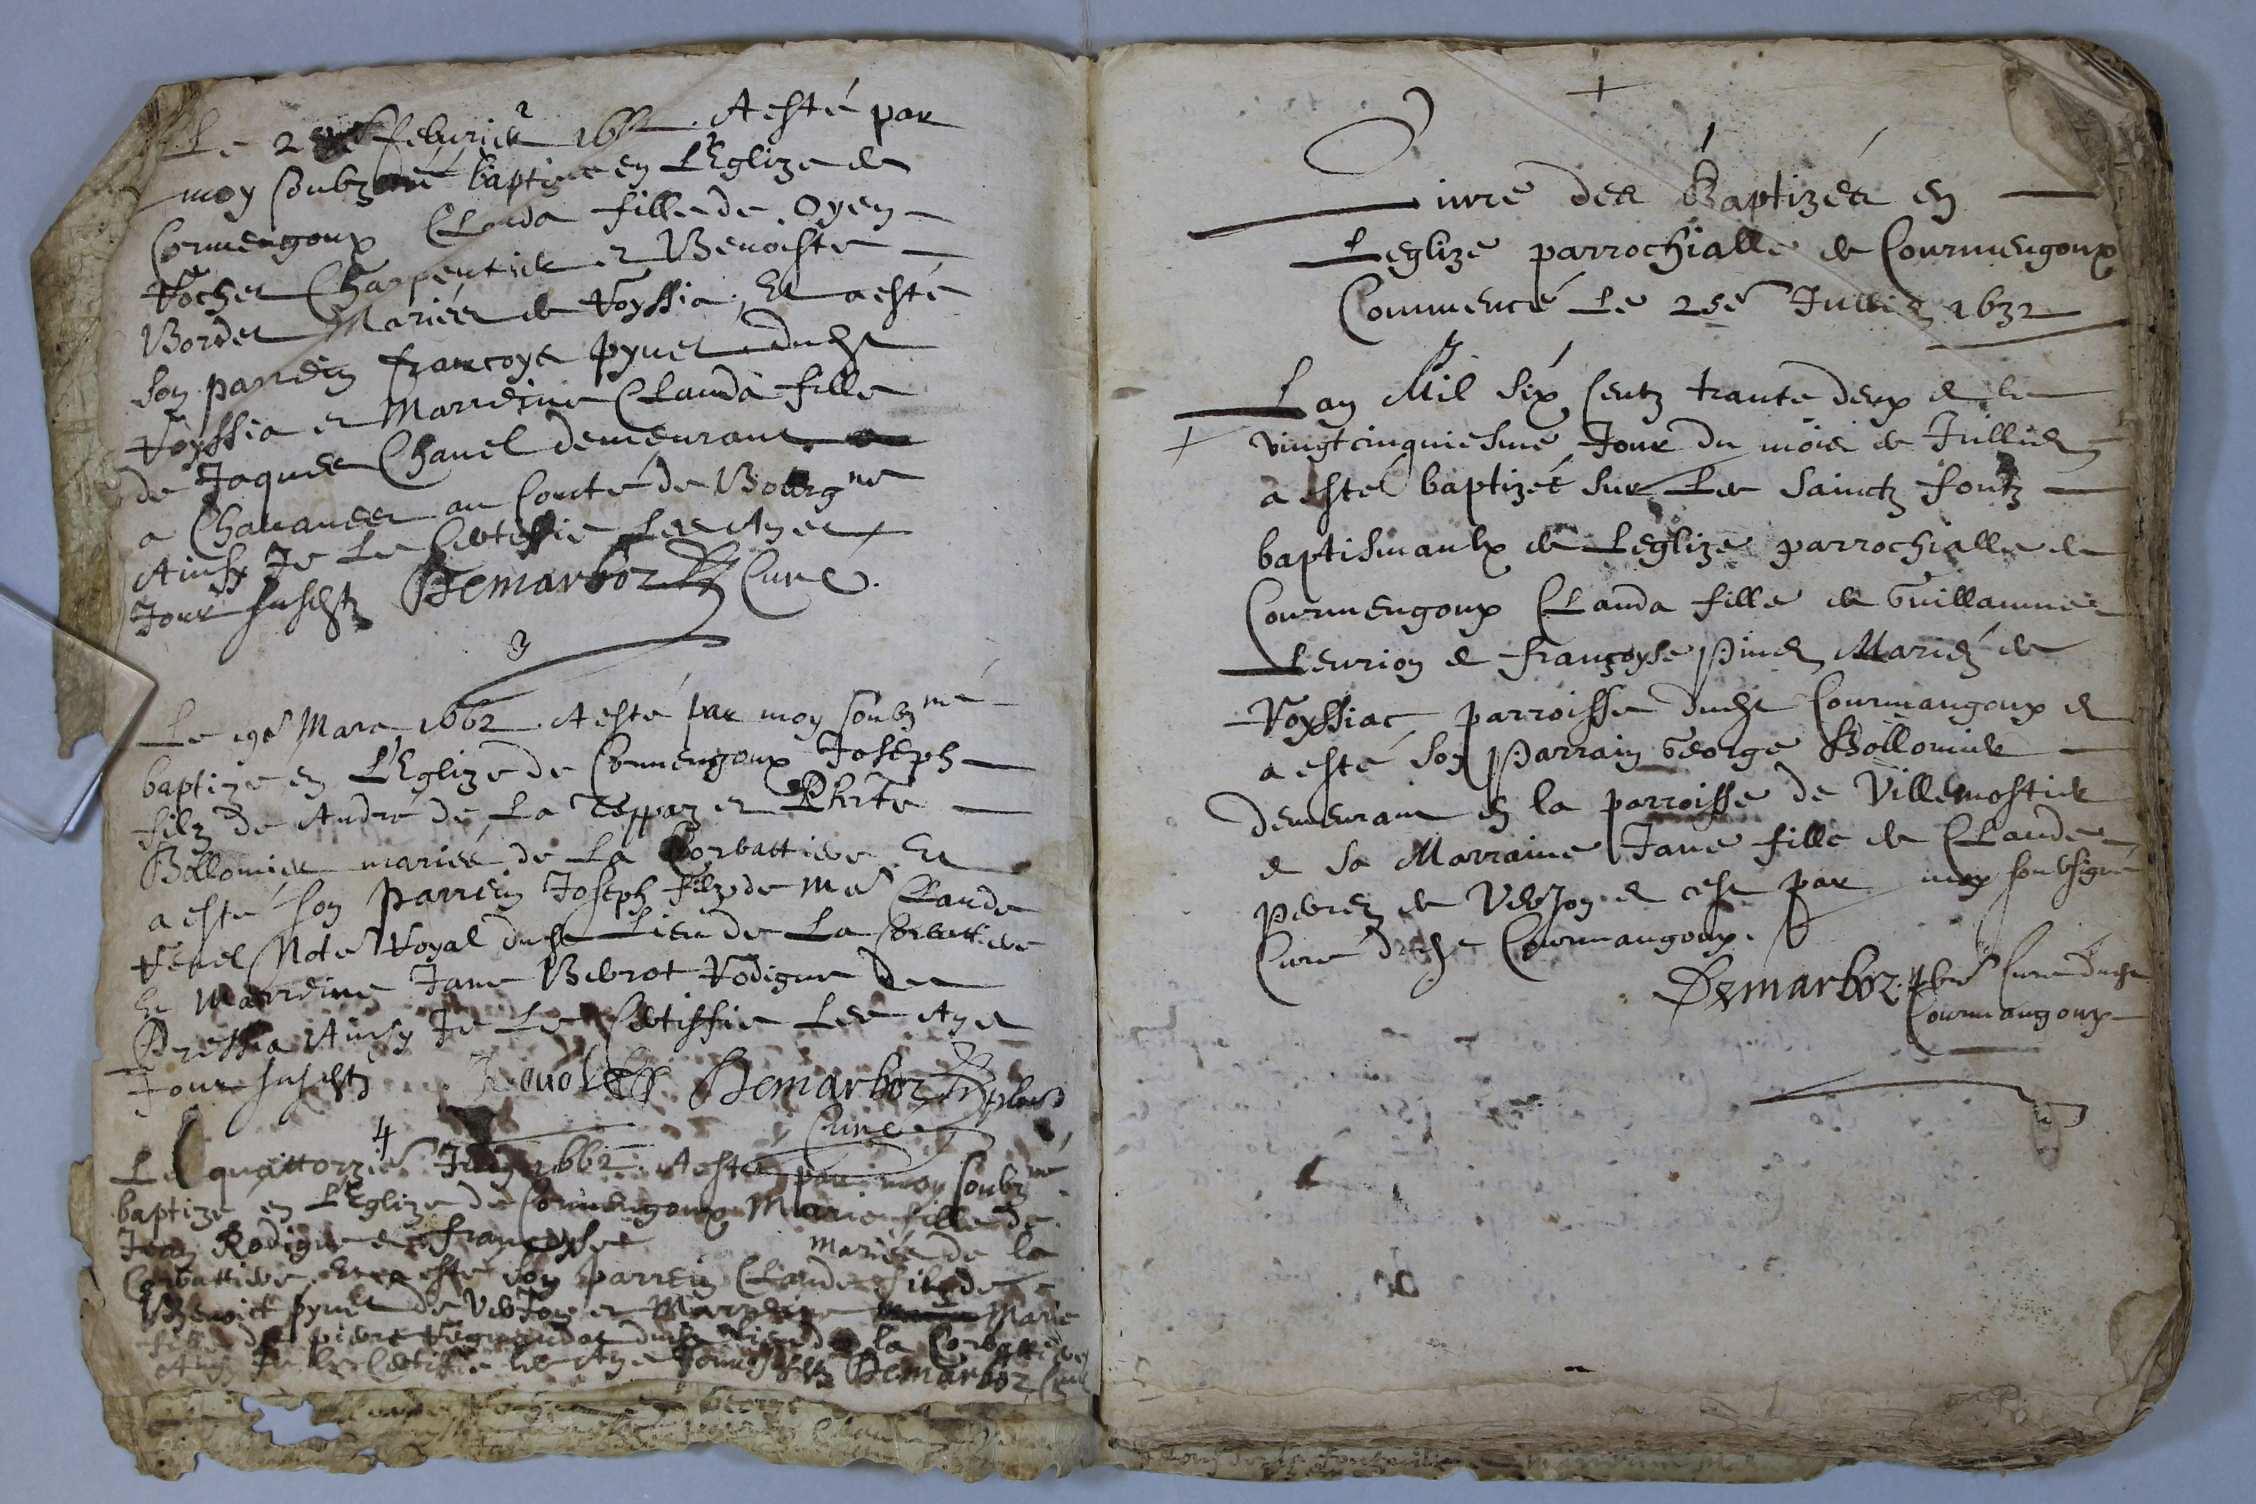 2
Le febvrier 1662. A esté par
moy soubz né baptizée en L'Eglize de
Cormengoux Clauda fille de Oyen
Rochet Charpentier et Benoiste
Bordet Mariés de Royssia, Et a esté
son parrein francoys pynet dudt
Royssia et Marreine Clauda fille
de Jaques Chanel demeurant
a Chavannes au Conté de Bourgne
Ainsy Je Le Certiffie Les An et
Jour susdts Demarboz Curé.
3
Le 19e Mars 1662. A esté par moy soubzné
baptizé en L'Eglize de Cormengoux Joseph
filz de André de La Teppaz et
Bollomier mariés de La Corbattiere Et
a esté son Parrein Joseph filz de Me Claude
Revel Note Royal dudt Lieu de La Corbattiere
Et Marreine Jane Bebrot Rodigue de
Pressia Ainsy Je Le Certiffie Les An et
Jour susdts Demarboz
Curé
4
Le quattorzie Juin 1662. A esté par moy soubzné
baptizé en L'Eglize de Cormengoux Marie fille de
Jean Rodigue et françoyse mariés de la
Corbattiere. Et a esté son parrein Claude filz de
Benoict pynet de Verjon et Marreine Marie
fille de pierre dudt lieu de la Corbattiere
Ainsy Je le Certiffie les An et Jour susdts Demarboz Curé
Livre des Baptizés en
Leglize parrochialle de Courmengoux
Commencé Le 25e Juillet 1632
Lan Mil Six Centz trante deux et le
vingtcinquiesme Jour du mois de Juillet
a esté baptizée sur Les Sainctz fontz
baptismaulx de Leglize parrochialle de
Courmengoux Clauda fille de Guillaume
Leurion et françoyse Pinet Mariez de
Royssiac parroisse dudt Courmangoux et
a esté son Parrain George Bollomier
demeurant en la parroisse de Villemostier
et sa Marraine Jane fille de Claude
de Verjon et cest par moy soubsigné
Curé dudt Courmangoux.
Demarboz pbre Curé dudt
Courmangoux